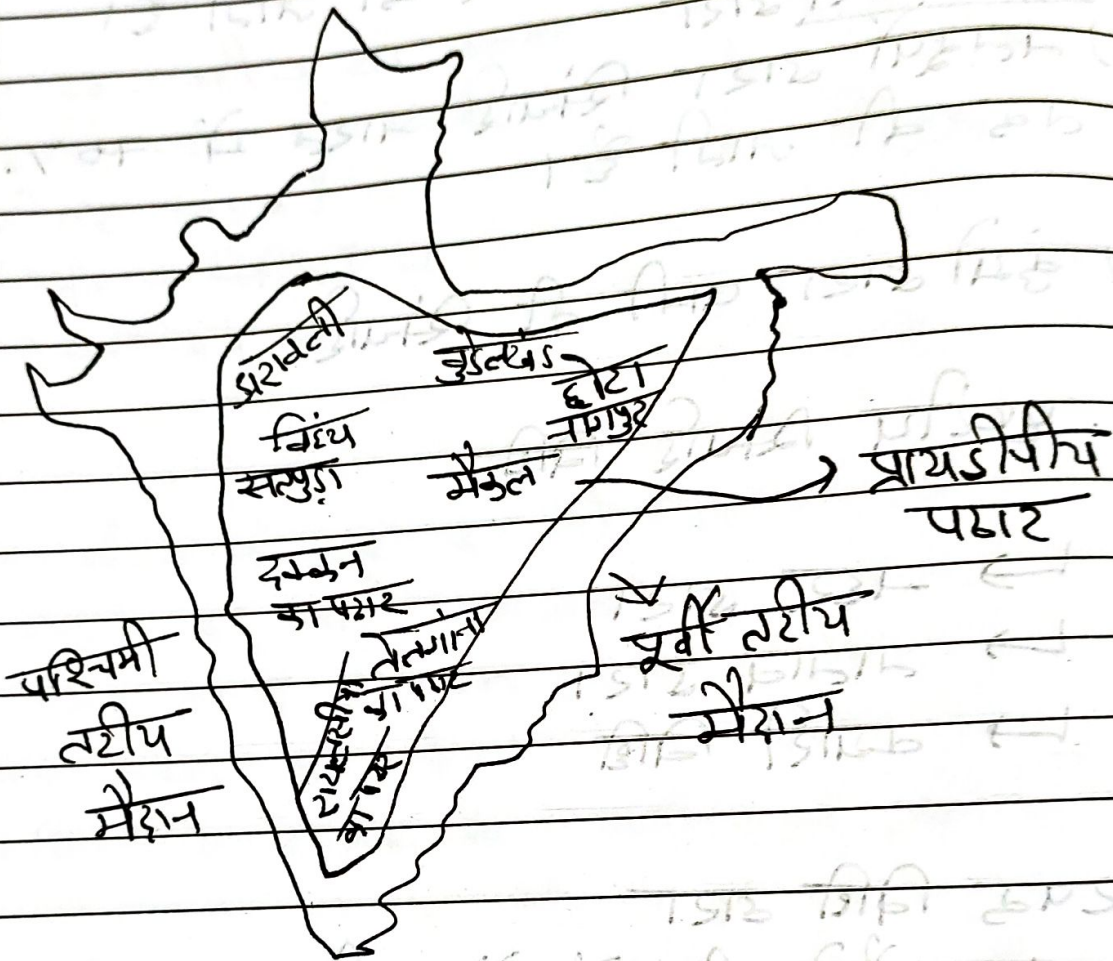 अरावली
बुंदेलखंड
छोटा
नागपुर
विंध्य
सतपुड़ा
मैकुल
प्रायडीपीय
पठार
दक्कन
का पठार
तेलगांना
का पठार
रायलसीमा
का पठार
पश्चिमी
तटीय
मैदान
पूर्वी तटीय
मैदान